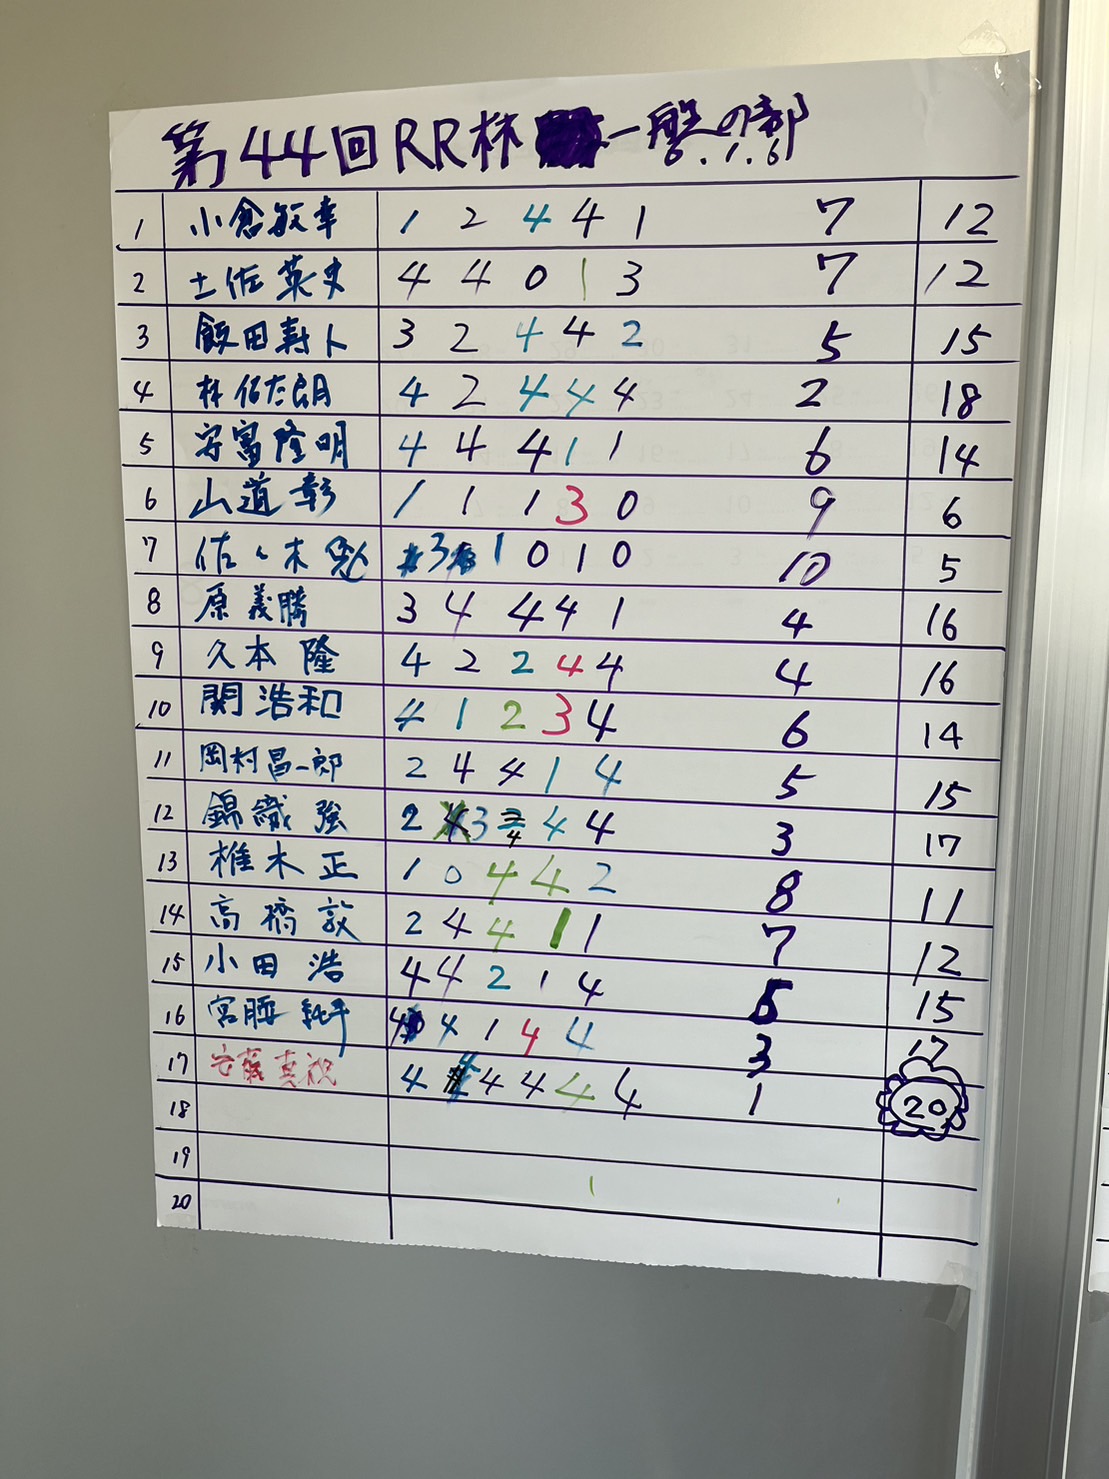 第44回RR杯 一般の部
6.1.6
1 小倉敏幸 1 2 4 4 1 7 12
2 土佐英史 4 4 0 1 3 7 12
3 飯田寿人 3 2 4 4 2 5 15
4 林佑太朗 4 2 4 4 4 2 18
5 安富隆明 4 4 4 1 1 6 14
6 山道彰 1 1 1 3 0 9 6
7 佐々木勉 3 1 0 1 0 10 5
8 原義勝 3 4 4 4 1 4 16
9 久本隆 4 2 2 4 4 4 16
10 関浩和 4 1 2 3 4 6 14
11 岡村昌一郎 2 4 4 1 4 5 15
12 錦織強 2 3 4 4 4 3 17
13 椎木正 1 0 4 4 2 8 11
14 高橋敦 2 4 4 1 1 7 12
15 小田浩 4 4 2 1 4 5 15
16 宮腰純平 4 4 1 4 4 3 17
17 安藤真視 4 4 4 4 4 1 20
18
19
20